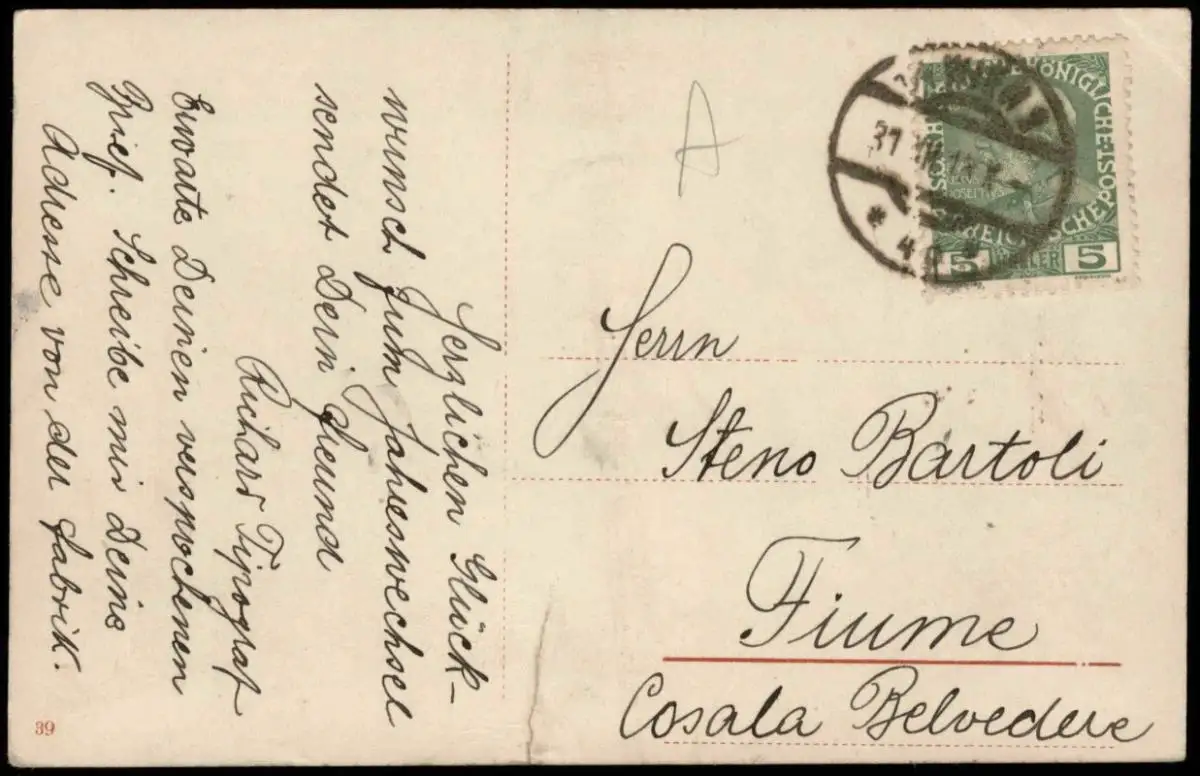 Herzlichen Glück-
wunsch zum Jahreswechsel
sendet Dein Freund
Richard Tipograf
Erwate Deinen versprochenen
Brief. Schreibe mir Deine
Adresse von der Fabrik.
39
A
31 XII 13
* 4 *
KÖNIGLICHE
5 HELLER 5
Herrn
Steno Bartoli
Fiume
Cosala Belvedere